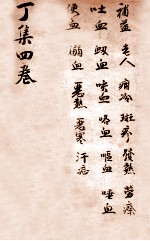 補益 老人 痼冷 斑疹 發熱 勞瘵
吐血 衂血 咳血 咯血 嘔血 唾血
便血 溺血 惡熱 惡寒 汗
丁集四卷